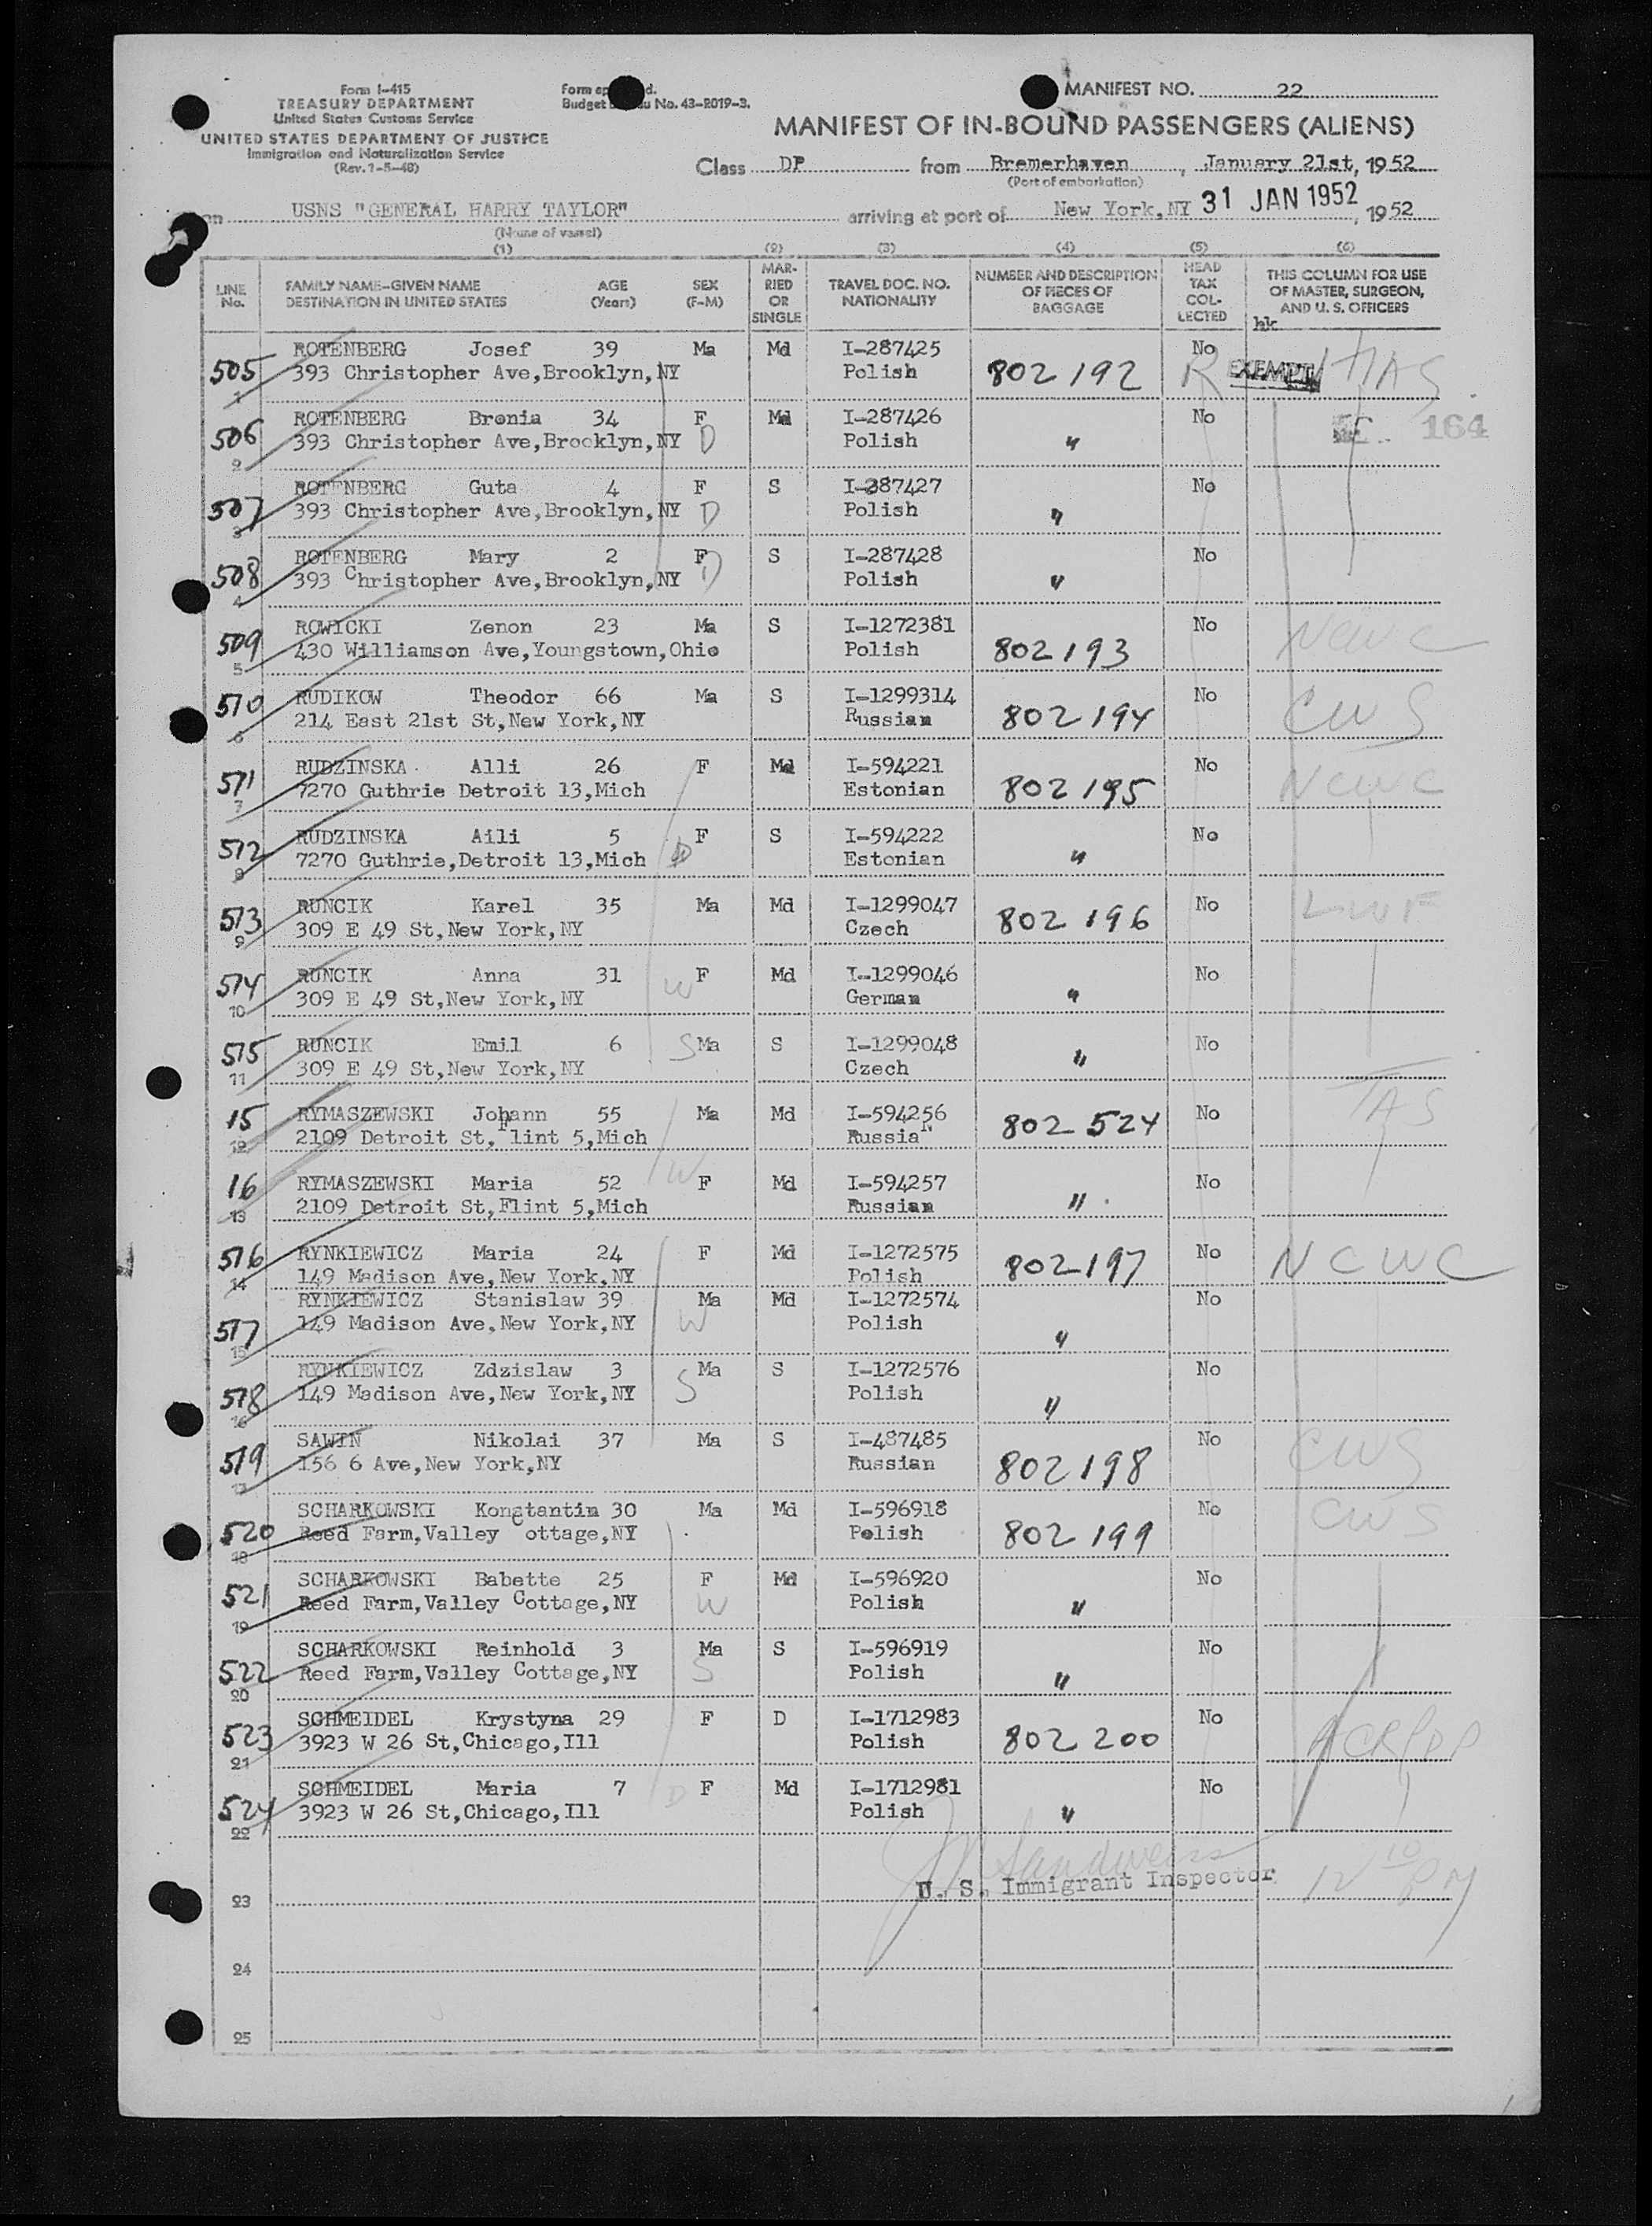 Form I-415
TREASURY DEPARTMENT
United States Customs Service
UNITED STATES DEPARTMENT OF JUSTICE
Immigration and Naturalization Service
(Rev. 1-5-48)
Form ap d.
Budget u No. 43-R019-3.
MANIFEST NO. 22
MANIFEST OF IN-BOUND PASSENGERS (ALIENS)
Class DP from Bremerhaven, January 21st, 1952
(Port of embarkation)
on USNS "GENERAL HARRY TAYLOR" arriving at port of New York, NY 31 JAN 1952, 1952
(Name of vessel)
(1) (2) (3) (4) (5) (6)
LINE No. FAMILY NAME-GIVEN NAME DESTINATION IN UNITED STATES AGE (Years) SEX (F-M) MARRIED OR SINGLE TRAVEL DOC. NO. NATIONALITY NUMBER AND DESCRIPTION OF PIECES OF BAGGAGE HEAD TAX COLLECTED THIS COLUMN FOR USE OF MASTER, SURGEON, AND U. S. OFFICERS
hk
ROTENBERG Josef 39 Ma Md I-287425 No
505 393 Christopher Ave,Brooklyn,NY Polish 802 192 R EXEMPT HIAS
1
ROTENBERG Bronia 34 F Md I-287426 No
506 393 Christopher Ave,Brooklyn,NY D Polish " 164
2
ROTENBERG Guta 4 F S I-287427 No
507 393 Christopher Ave,Brooklyn,NY D Polish "
3
ROTENBERG Mary 2 F S I-287428 No
508 393 Christopher Ave,Brooklyn,NY D Polish "
4
ROWICKI Zenon 23 Ma S I-1272381 No
509 430 Williamson Ave,Youngstown,Ohio Polish 802 193 NCWC
5
RUDIKOW Theodor 66 Ma S I-1299314 No
510 214 East 21st St,New York,NY Russian 802 194 CWS
6
RUDZINSKA Alli 26 F Md I-594221 No
511 7270 Guthrie Detroit 13,Mich Estonian 802 195 NCWC
7
RUDZINSKA Aili 5 F S I-594222 No
512 7270 Guthrie,Detroit 13,Mich D Estonian "
8
RUNCIK Karel 35 Ma Md I-1299047 No
513 309 E 49 St,New York,NY Czech 802 196 LWF
9
RUNCIK Anna 31 F Md I-1299046 No
514 309 E 49 St,New York,NY W German "
10
RUNCIK Emil 6 S Ma S I-1299048 No
515 309 E 49 St,New York,NY Czech "
11
15 RYMASZEWSKI Johann 55 Ma Md I-594256 No
2109 Detroit St,Flint 5,Mich RussiaN 802 524 IAS
12
16 RYMASZEWSKI Maria 52 W F Md I-594257 No
2109 Detroit St,Flint 5,Mich Russian "
13
516 RYNKIEWICZ Maria 24 F Md I-1272575 No NCWC
149 Madison Ave,New York,NY Polish 802197
14
RYNKIEWICZ Stanislaw 39 Ma Md I-1272574 No
517 149 Madison Ave,New York,NY W Polish "
15
RYNKIEWICZ Zdzislaw 3 Ma S I-1272576 No
518 149 Madison Ave,New York,NY S Polish "
16
SAWIN Nikolai 37 Ma S I-487485 No
519 156 6 Ave,New York,NY Russian 802 198 CWS
17
SCHARKOWSKI Konstantin 30 Ma Md I-596918 No CWS
520 Reed Farm,Valley Cottage,NY Polish 802 199
18
SCHARKOWSKI Babette 25 F Md I-596920 No
521 Reed Farm,Valley Cottage,NY W Polish "
19
SCHARKOWSKI Reinhold 3 Ma S I-596919 No
522 Reed Farm,Valley Cottage,NY S Polish "
20
SCHMEIDEL Krystyna 29 F D I-1712983 No
523 3923 W 26 St,Chicago,Ill Polish 802 200
21
SCHMEIDEL Maria 7 D F Md I-1712981 No
524 3923 W 26 St,Chicago,Ill Polish "
22
U. S. Immigrant Inspector 12 10 PM
23
24
25